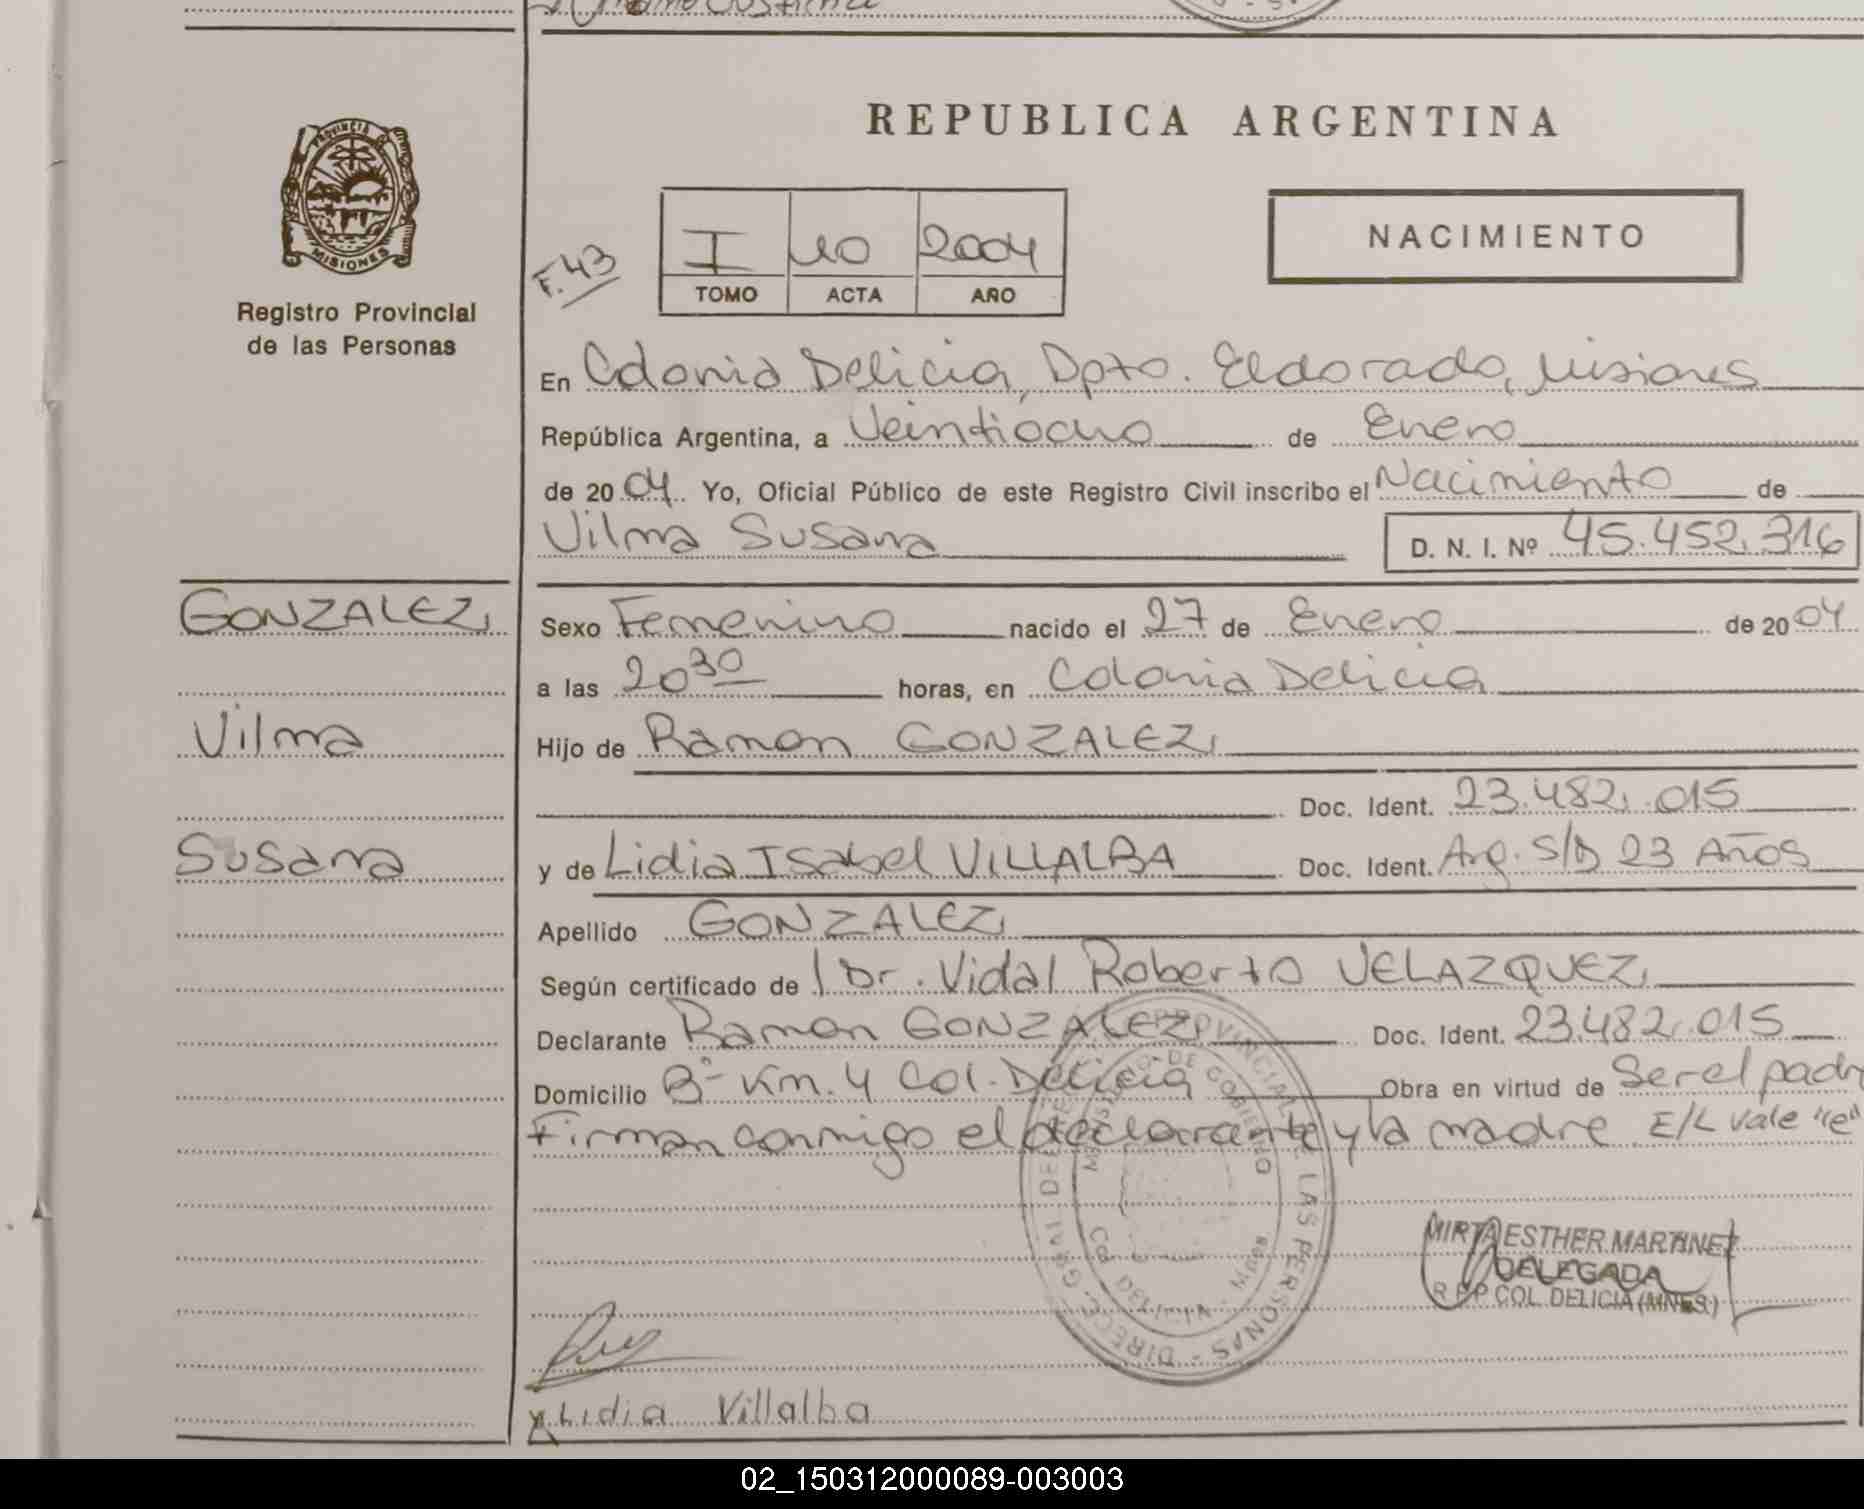 REPUBLICA ARGENTINA
PROVINCIA DE
MISIONES
Registro Provincial
de las Personas
F. 43
I 40 2004
TOMO ACTA AÑO
NACIMIENTO
En Colonia Delicia, Dpto. Eldorado, Misiones
República Argentina, a Veintiocho de Enero
de 2004. Yo, Oficial Público de este Registro Civil inscribo el Nacimiento de
Vilma Susana D. N. I. Nº 45.452.316
GONZALEZ,
Vilma
Susana
Sexo Femenino nacido el 27 de Enero de 2004
a las 20 30 horas, en Colonia Delicia
Hijo de Ramon GONZALEZ,
Doc. Ident. 23.482.015
y de Lidia Isabel VILLALBA Doc. Ident. Arg. S/D 23 Años
Apellido GONZALEZ,
Según certificado de l Dr. Vidal Roberto VELAZQUEZ,
Declarante Ramon GONZALEZ, Doc. Ident. 23.482.015
Domicilio Bº Km. 4 Col. Delicia Obra en virtud de Ser el padr
Firman conmigo el declarante y la madre E/L vale "e"
DIREC. GRAL. DEL REG. PROVINCIAL DE LAS PERSONAS
MINISTERIO DE GOBIERNO
COL. DELICIA - Mnes
MIRTA ESTHER MARTINEZ
DELEGADA
R.P.P. COL. DELICIA (MNES.)
x Lidia Villalba
02_150312000089-003003